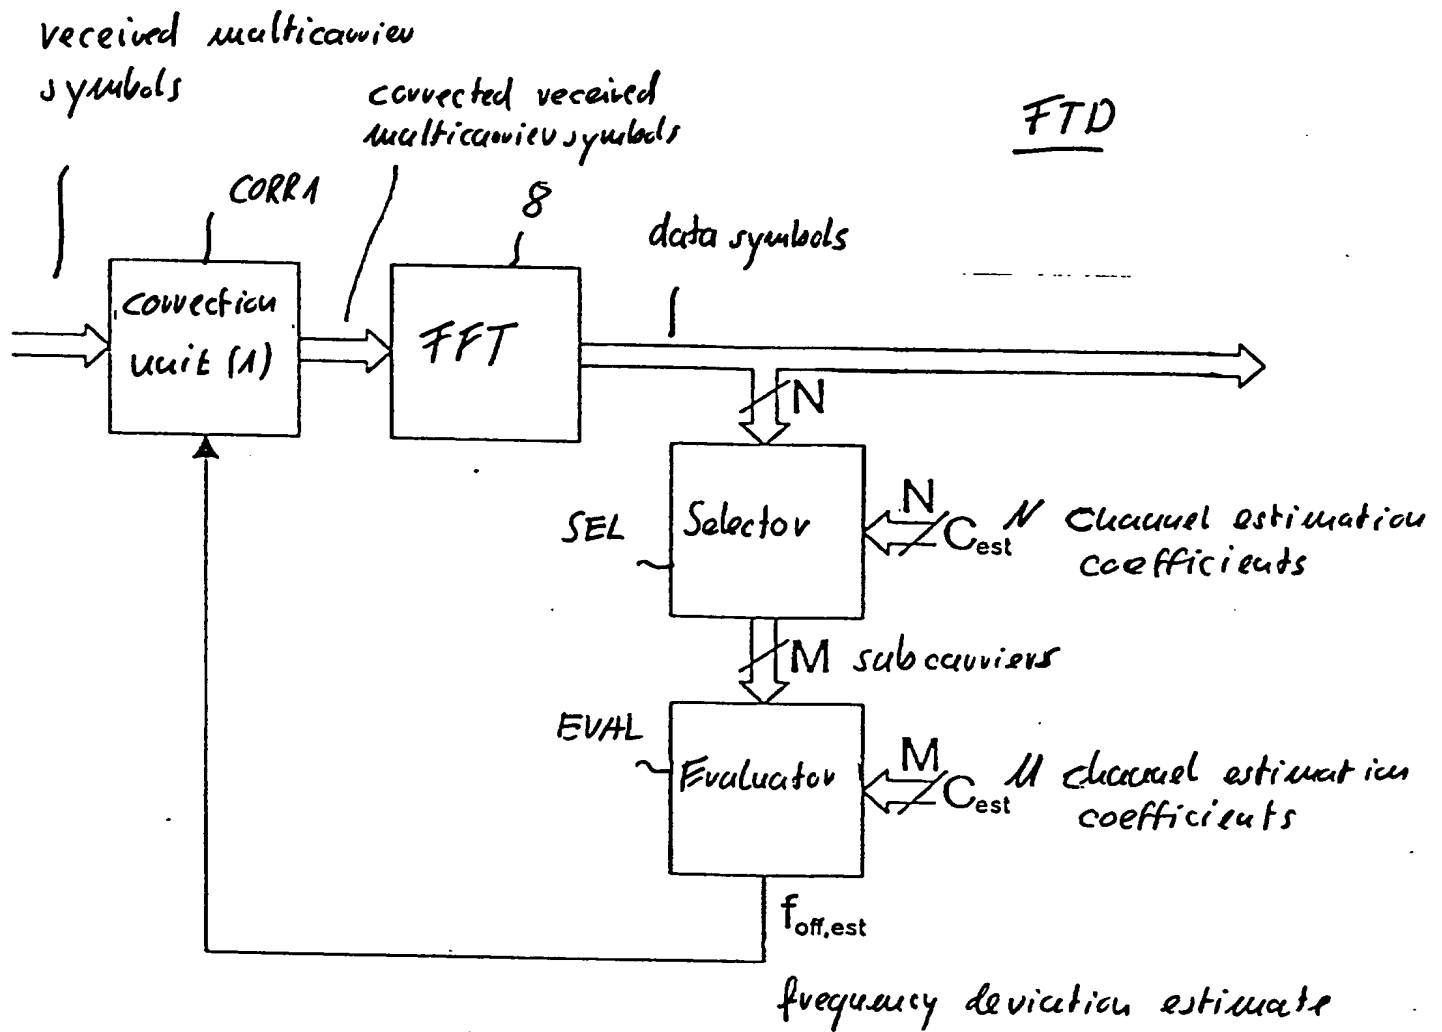 received multicarrier
symbols
corrected received
multicarrier symbols
FTD
CORR1
8
data symbols
correction
unit (1)
FFT
N
SEL
Selector
N
Cest
N channel estimation
coefficients
M subcarriers
EVAL
Evaluator
M
Cest
M channel estimation
coefficients
foff,est
frequency deviation estimate